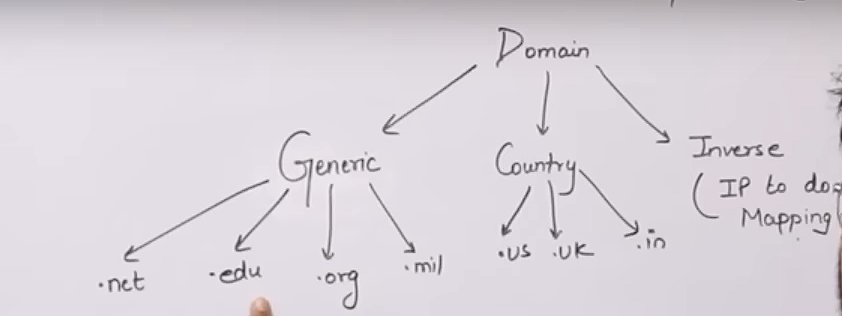 Domain
Generic
Country
Inverse
(IP to do
Mapping
.net
.edu
.org
.mil
.us
.uk
.in